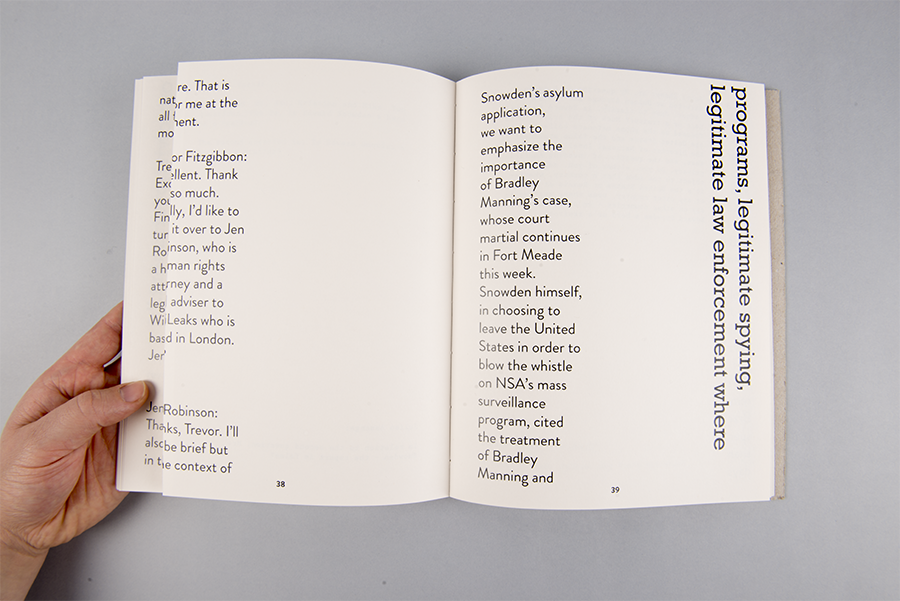 re. That is
nat or me at the
all f nent.
mo
or Fitzgibbon:
Tre ellent. Thank
Exc so much.
you lly, I'd like to
Fin it over to Jen
tur inson, who is
Ro man rights
a h rney and a
att adviser to
leg Leaks who is
Wi d in London.
bas
Jen
Jen Robinson:
Thanks, Trevor. I'll
also be brief but
in the context of
38
Snowden's asylum
application,
we want to
emphasize the
importance
of Bradley
Manning's case,
whose court
martial continues
in Fort Meade
this week.
Snowden himself,
in choosing to
leave the United
States in order to
blow the whistle
on NSA's mass
surveillance
program, cited
the treatment
of Bradley
Manning and
39
programs, legitimate spying,
legitimate law enforcement where